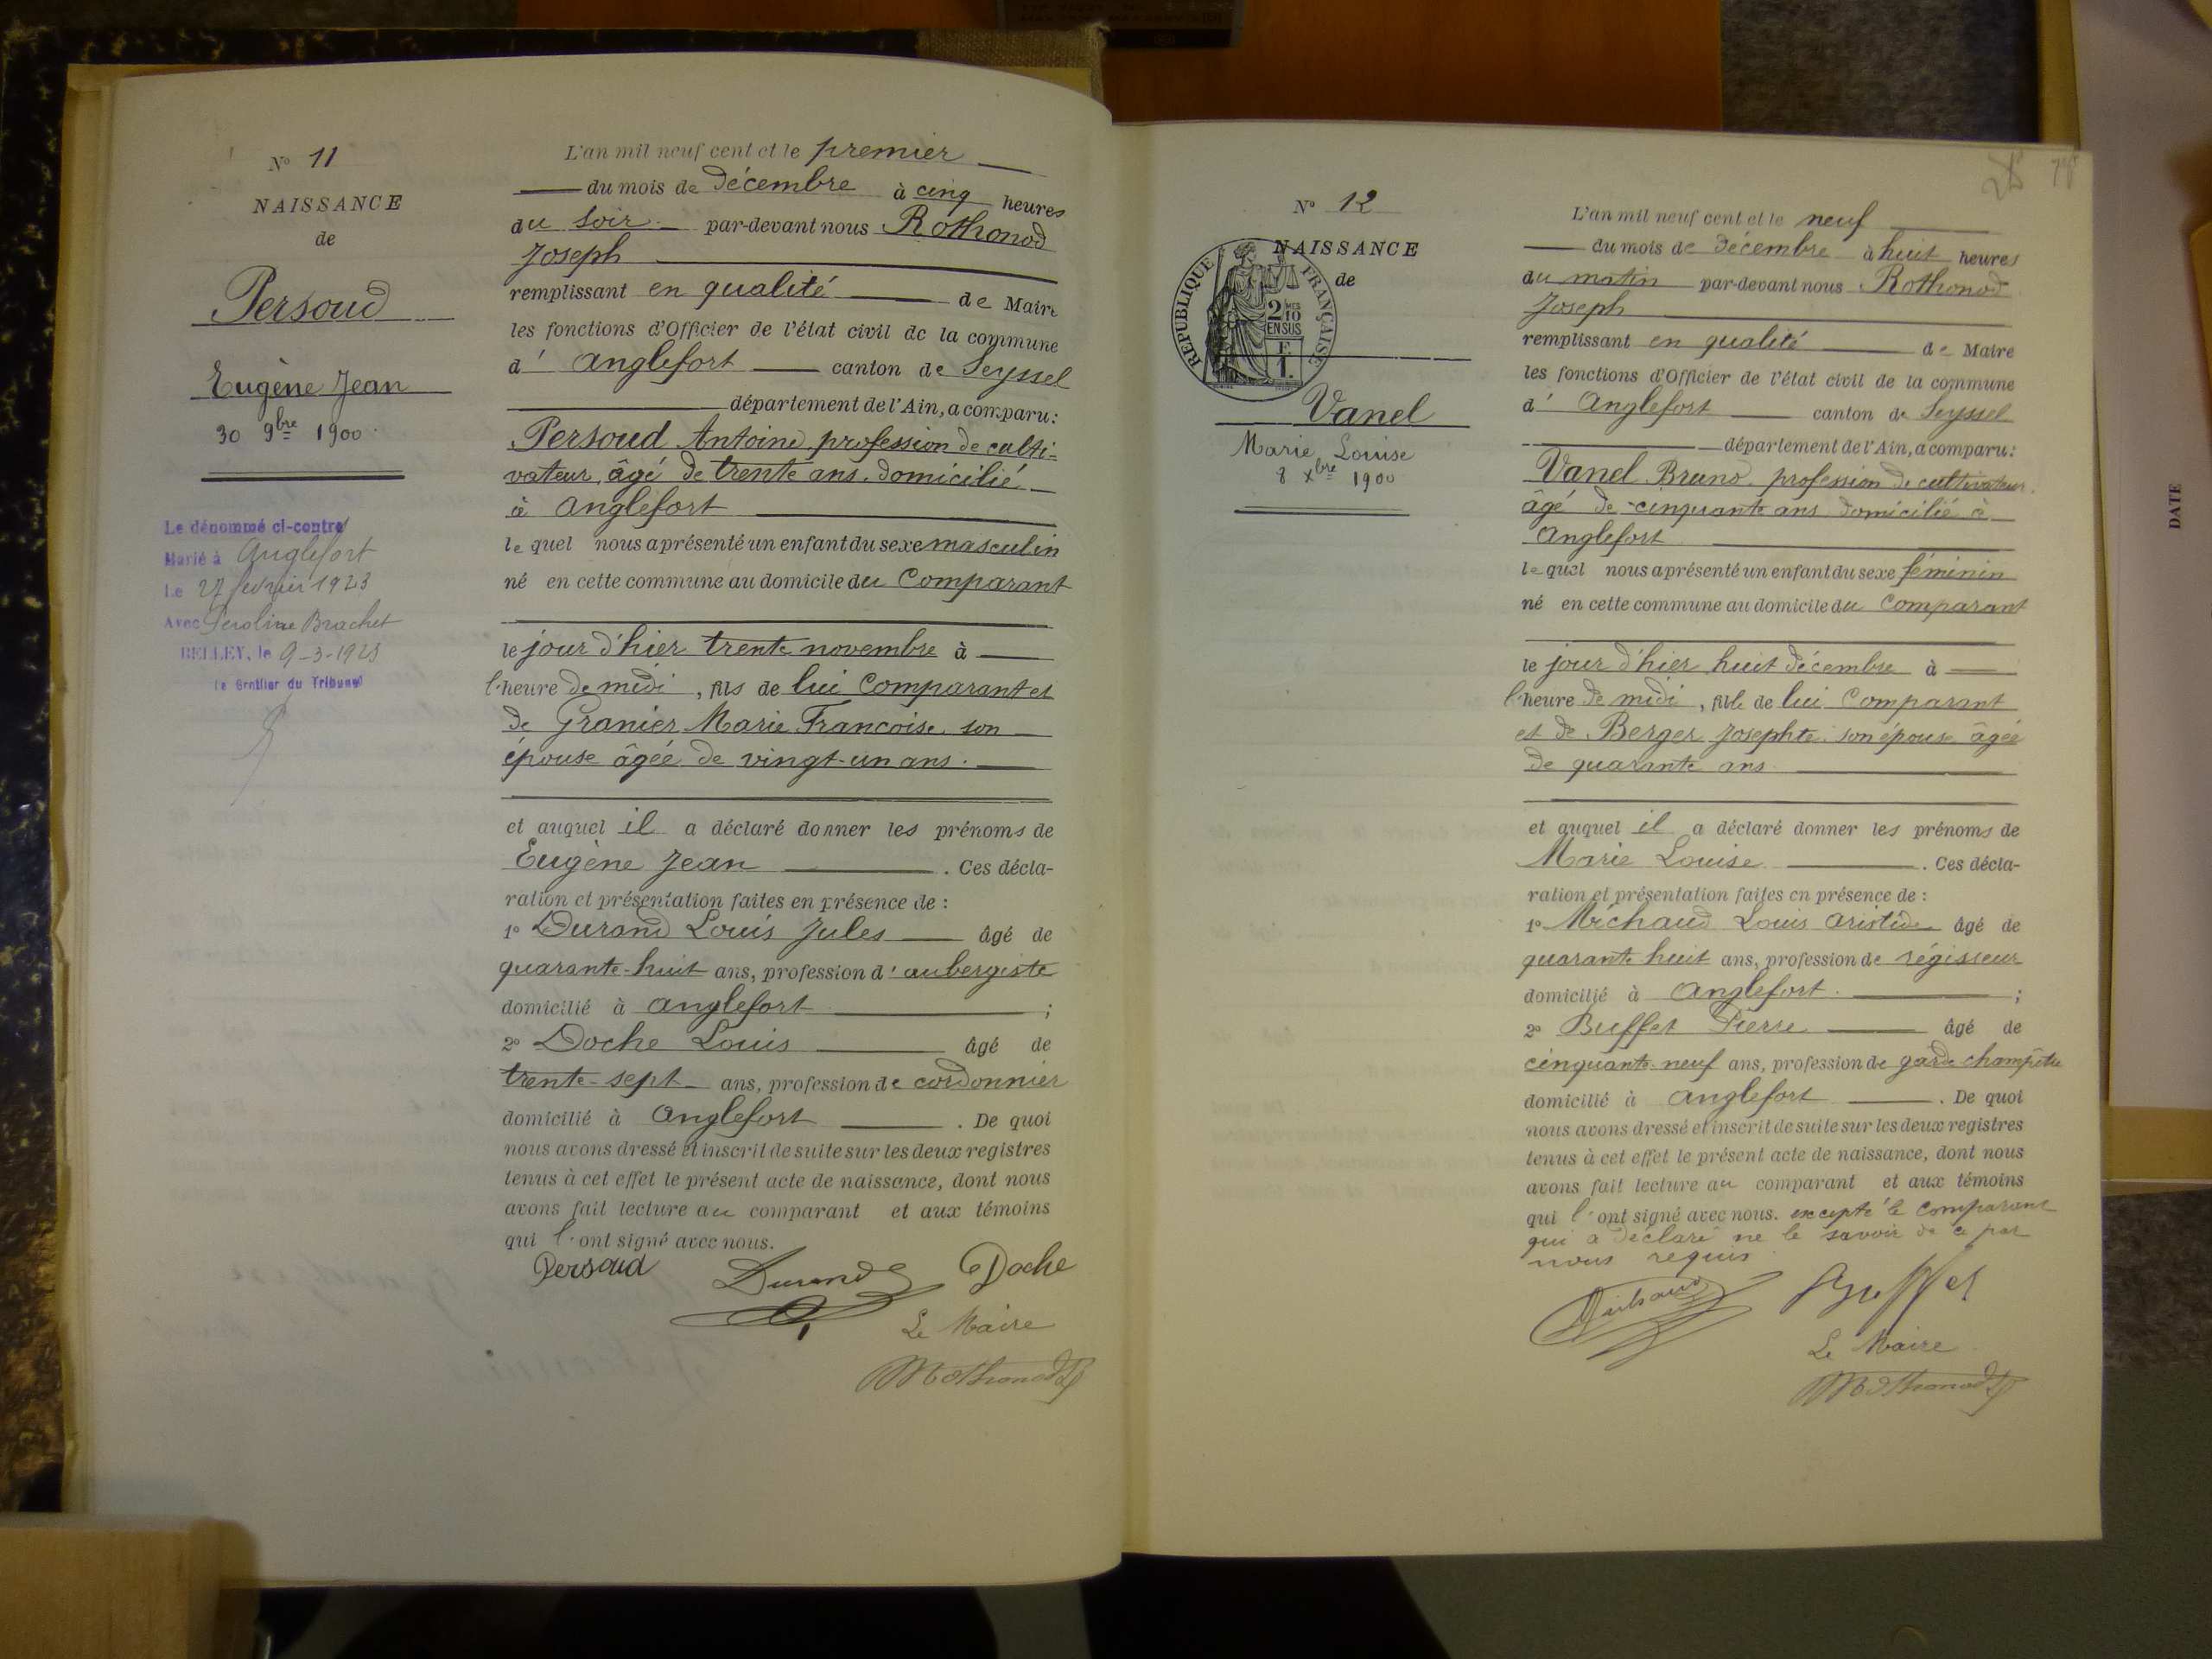 N° 11
NAISSANCE
de
Persoud
Eugène Jean
30 9bre 1900.
Le dénommé ci-contre
Marié à Anglefort
Le 27 février 1923
Avec Brachet
BELLEY, le 9-3-1923
Le Greffier du Tribunal
L'an mil neuf cent et le premier
du mois de décembre à cinq heures
du soir. par-devant nous Rothonod
Joseph
remplissant en qualité de Maire
les fonctions d'Officier de l'état civil de la commune
d' Anglefort canton de Seyssel
département de l'Ain, a comparu:
Persoud Antoine, profession de culti-
vateur, âgé de trente ans, domicilié
à Anglefort
lequel nous a présenté un enfant du sexe masculin
né en cette commune au domicile du Comparant
le jour d'hier trente novembre à
l'heure de midi, fils de lui Comparant et
de Granier Marie Francoise son
épouse âgée de vingt-un ans.
et auquel il a déclaré donner les prénoms de
Eugène Jean . Ces décla-
ration et présentation faites en présence de :
1° Durand Louis Jules âgé de
quarante-huit ans, profession d'aubergiste
domicilié à Anglefort ;
2° Doche Louis âgé de
trente-sept ans, profession de cordonnier
domicilié à Anglefort . De quoi
nous avons dressé et inscrit de suite sur les deux registres
tenus à cet effet le présent acte de naissance, dont nous
avons fait lecture au comparant et aux témoins
qui l'ont signé avec nous.
Persoud Durand Doche
Le Maire
Rothonod
N° 12
NAISSANCE
de
RÉPUBLIQUE FRANÇAISE
2 MES 10
EN SUS
F.
1.
Vanel
Marie Louise
8 Xbre 1900
L'an mil neuf cent et le neuf
du mois de décembre à huit heures
du matin par-devant nous Rothonod
Joseph
remplissant en qualité de Maire
les fonctions d'Officier de l'état civil de la commune
d' Anglefort canton de Seyssel
département de l'Ain, a comparu:
Vanel Bruno, profession de cultivateur,
âgé de cinquante ans domicilié à
Anglefort
lequel nous a présenté un enfant du sexe féminin
né en cette commune au domicile du Comparant
le jour d'hier huit décembre à
l'heure de midi, fille de lui Comparant
et de Berger Josephte son épouse âgée
de quarante ans.
et auquel il a déclaré donner les prénoms de
Marie Louise . Ces décla-
ration et présentation faites en présence de :
1° Michaud Louis Aristide âgé de
quarante huit ans, profession de régisseur
domicilié à Anglefort. ;
2° Buffet Pierre âgé de
cinquante-neuf ans, profession de garde champêtre
domicilié à Anglefort . De quoi
nous avons dressé et inscrit de suite sur les deux registres
tenus à cet effet le présent acte de naissance, dont nous
avons fait lecture au comparant et aux témoins
qui l'ont signé avec nous. excepté le comparant
qui a déclaré ne le savoir de ce par
nous requis
Buffet
Le Maire
Rothonod
DATE